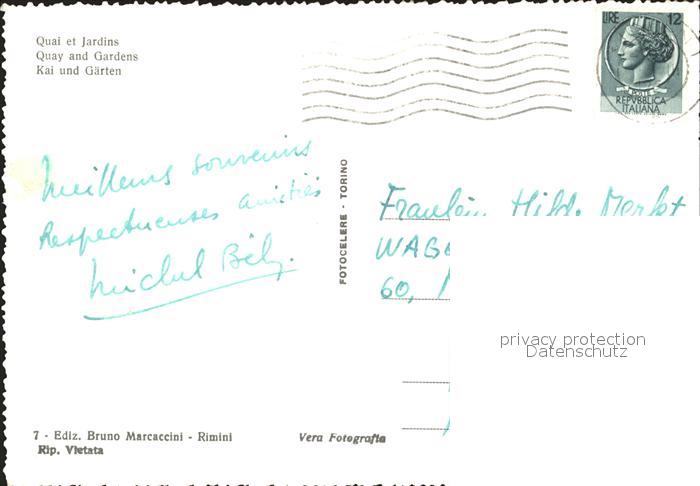 Quai et Jardins
Quay and Gardens
Kai und Gärten
LIRE 12
POSTE
REPVBBLICA
ITALIANA
Meilleurs souvenirs
Respectueuses amitiés
Michel
FOTOCELERE - TORINO
Fraulein Hild. Merkt
60,
privacy protection
Datenschutz
7 - Ediz. Bruno Marcaccini - Rimini
Rip. Vietata
Vera Fotografia